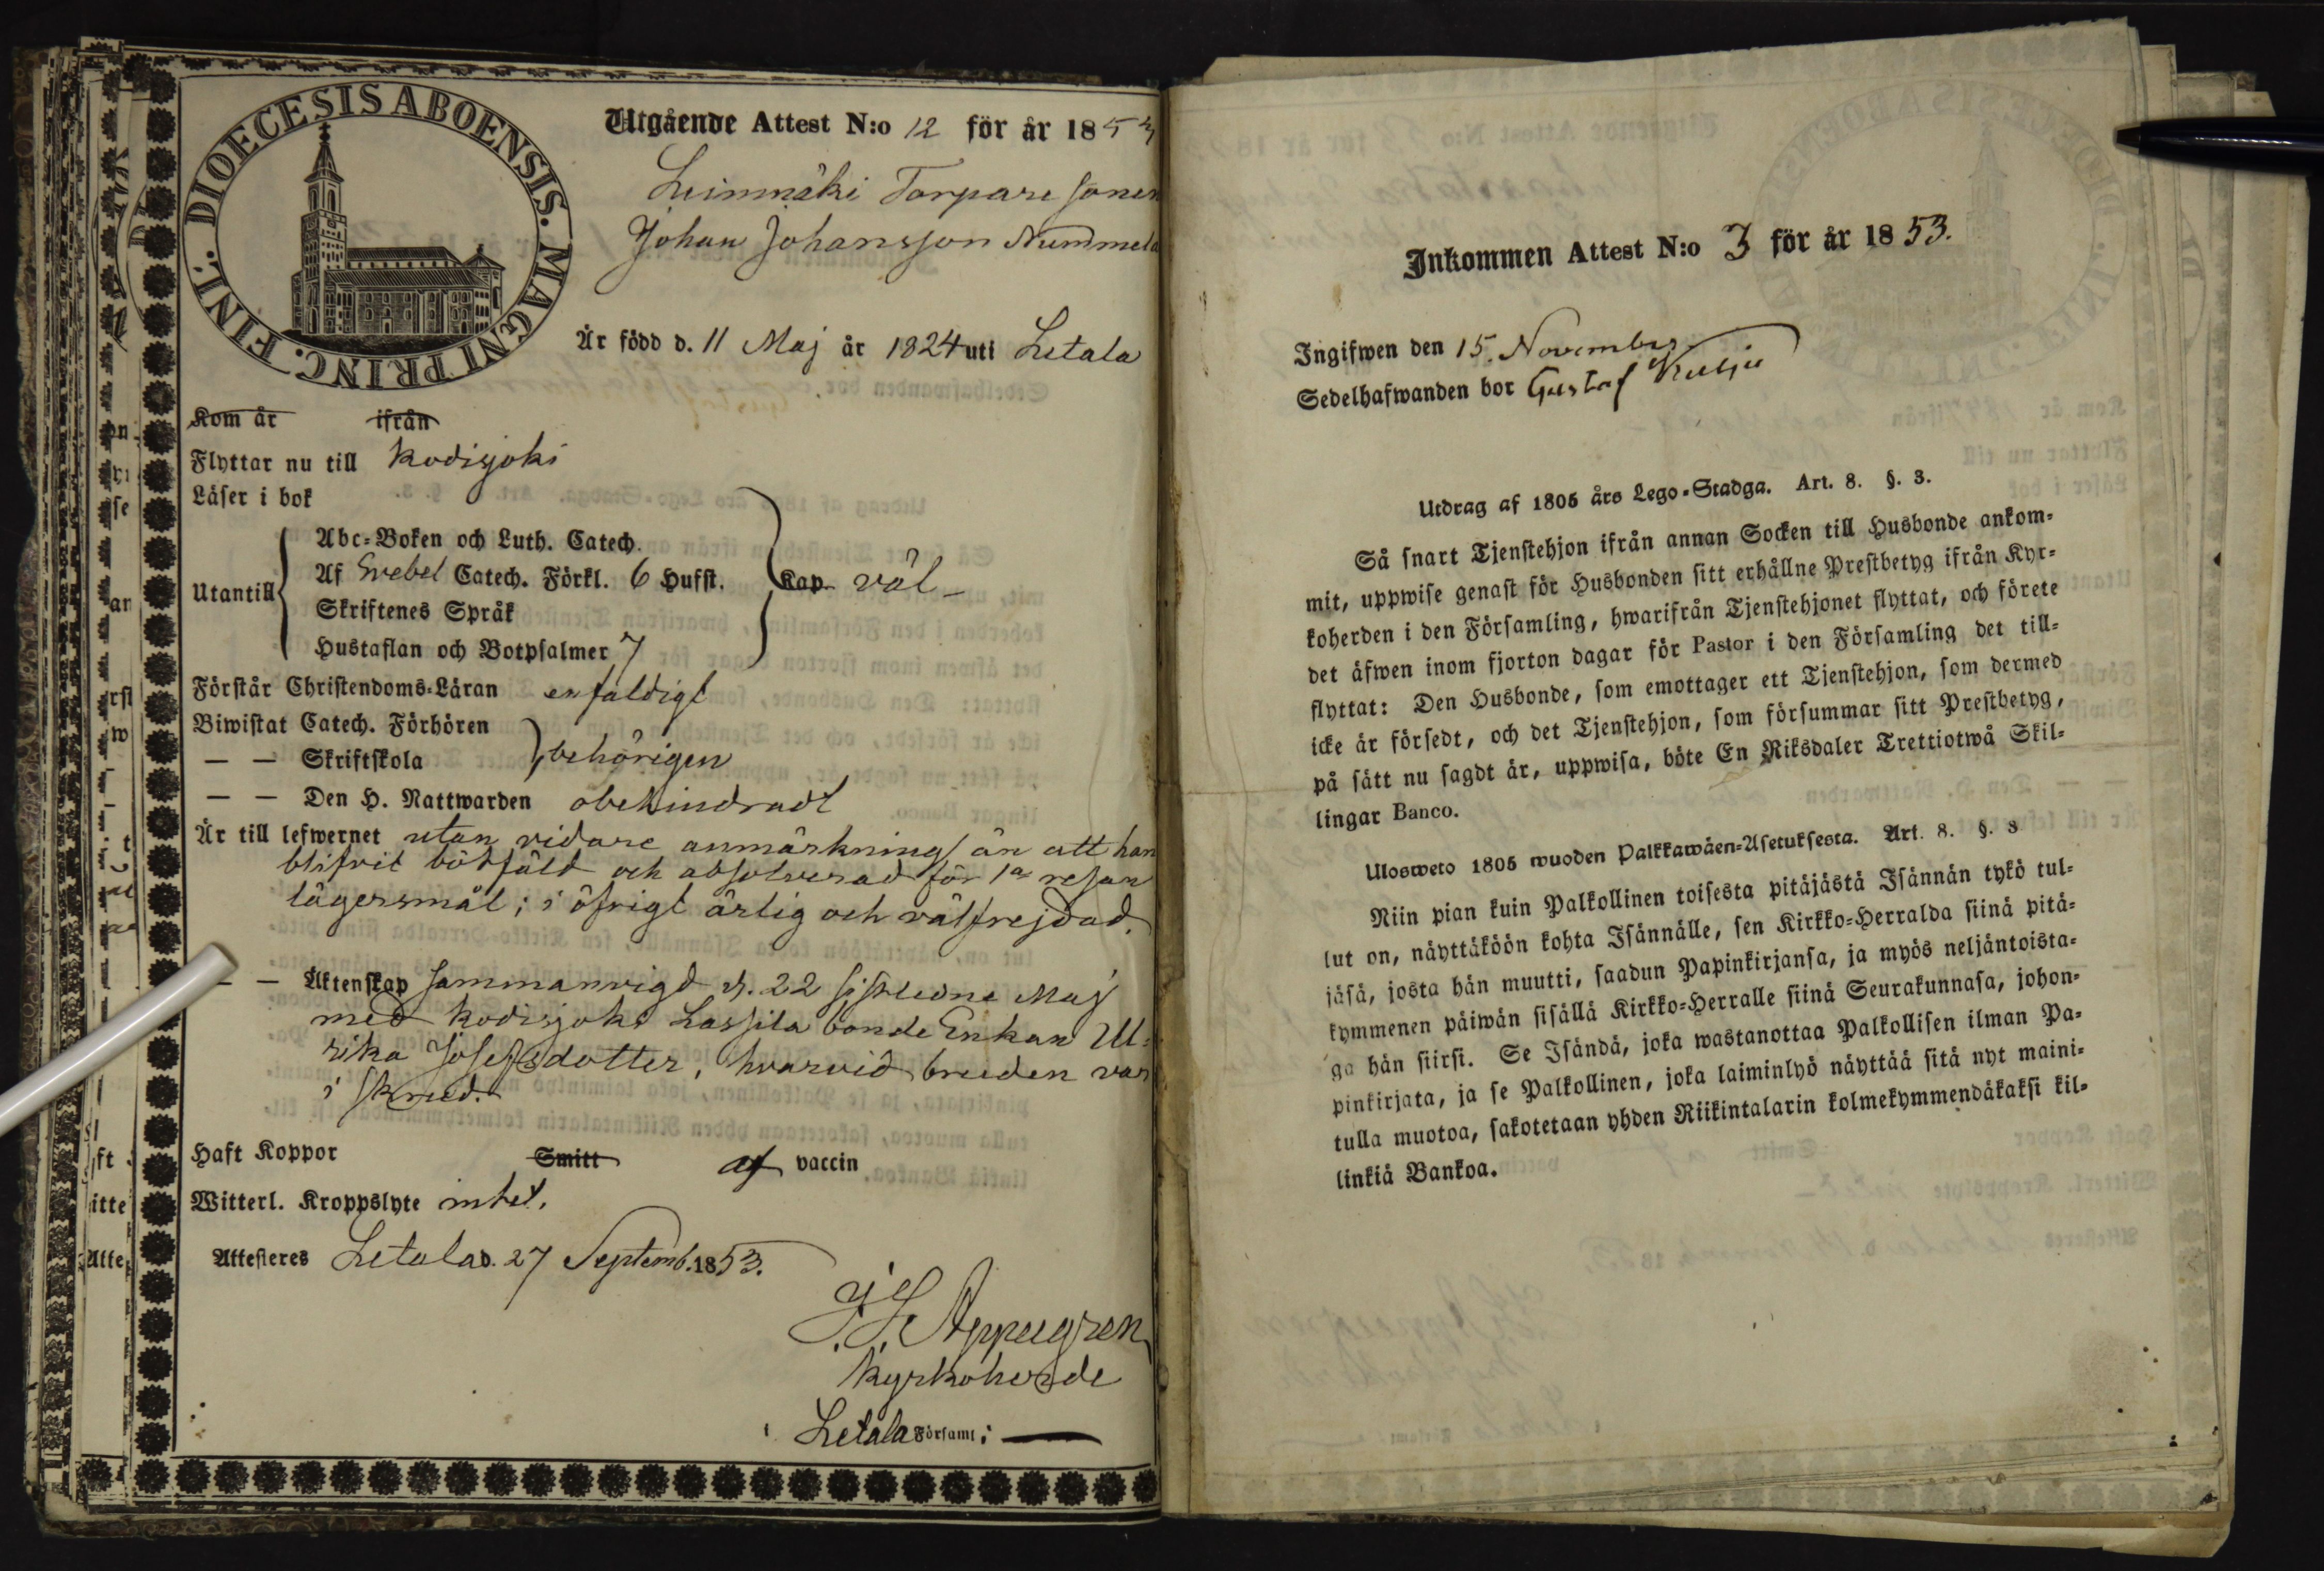 DIOECESIS ABOENSIS. MAGNI PRINC. FINL.
Utgående Attest N:o 12 för år 1853
Leinmäki Torpare sonen
Johan Johansson Nummela
Är född d. 11 Maj år 1824 uti Letala
Kom år ifrån
Flyttar nu till Kodisjoki
Läser i bok
Utantill
Abc-Boken och Luth. Catech.
Af Svebel Catech. Förkl. 6 Hufst. Kap. väl
Skriftenes Språk
Hustaflan och Botpsalmer 7
Förstår Christendoms-Läran enfaldigt
Biwistat Catech. Förhören
— — Skriftskola behörigen
— — Den H. Nattwarden obehindradt
Är till lefwernet utan vidare anmärkning än att han
blifvit bötfäld och absolverad för 1a resan
lägersmål; i öfrigt ärlig och välfrejdad.
— — Äktenskap sammanvigd d. 22 sistledne Maj
med Kodisjoki Lassila bonde Enkan Ul-
rika Josefsdotter, hvarvid bruden var
i skrud.
Haft Koppor Smitt af vaccin
Witterl. Kroppslyte intet.
Attesteres Letala d. 27 Septemb. 1853.
Kyrkoherde
i Letala Församl:
Inkommen Attest N:o 3 för år 1853.
Ingifwen den 15. November
Sedelhafwanden bor Gustaf
Utdrag af 1805 års Lego-Stadga. Art. 8. §. 3.
Så snart Tjenstehjon ifrån annan Socken till Husbonde ankom-
mit, uppwise genast för Husbonden sitt erhållne Prestbetyg ifrån Kyr-
koherden i den Församling, hwarifrån Tjenstehjonet flyttat, och förete
det äfwen inom fjorton dagar för Pastor i den Församling det till-
flyttat: Den Husbonde, som emottager ett Tjenstehjon, som dermed
icke är försedt, och det Tjenstehjon, som försummar sitt Prestbetyg,
på sätt nu sagdt är, uppwisa, böte En Riksdaler Trettiotwå Skil-
lingar Banco.
Ulosweto 1805 wuoden Palkkawäen-Asetuksesta. Art. 8. §. 3
Niin pian kuin Palkollinen toisesta pitäjästä Isännän tykö tul-
lut on, näyttäköön kohta Isännälle, sen Kirkko-Herralda siinä pitä-
jäsä, josta hän muutti, saadun Papinkirjansa, ja myös neljäntoista-
kymmenen päiwän sisällä Kirkko-Herralle siinä Seurakunnasa, johon-
ga hän siirsi. Se Isändä, joka wastanottaa Palkollisen ilman Pa-
pinkirjata, ja se Palkollinen, joka laiminlyö näyttää sitä nyt maini-
tulla muotoa, sakotetaan yhden Riikintalarin kolmekymmendäkaksi kil-
linkiä Bankoa.